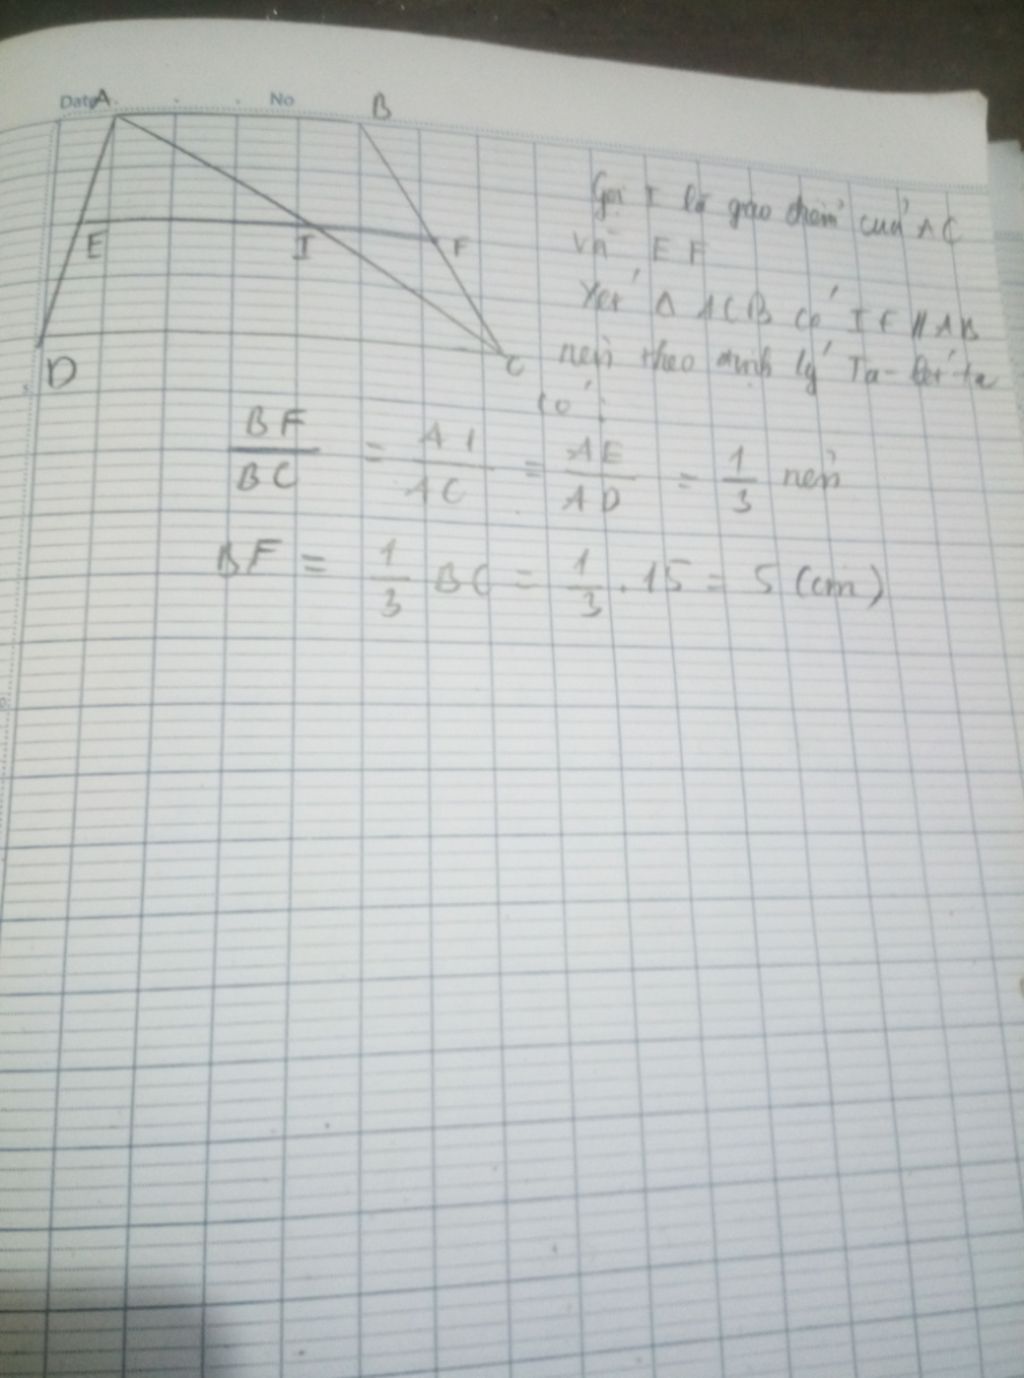 Date No
A B
E I F
D C
Gọi I là giao điểm của AC
và E F
Xét Δ ACB có IF // AB
nên theo định lý Ta-lét ta
có:
BF/BC = AI/AC = AE/AD = 1/3 nên
BF = 1/3 BC = 1/3 . 15 = 5 (cm)